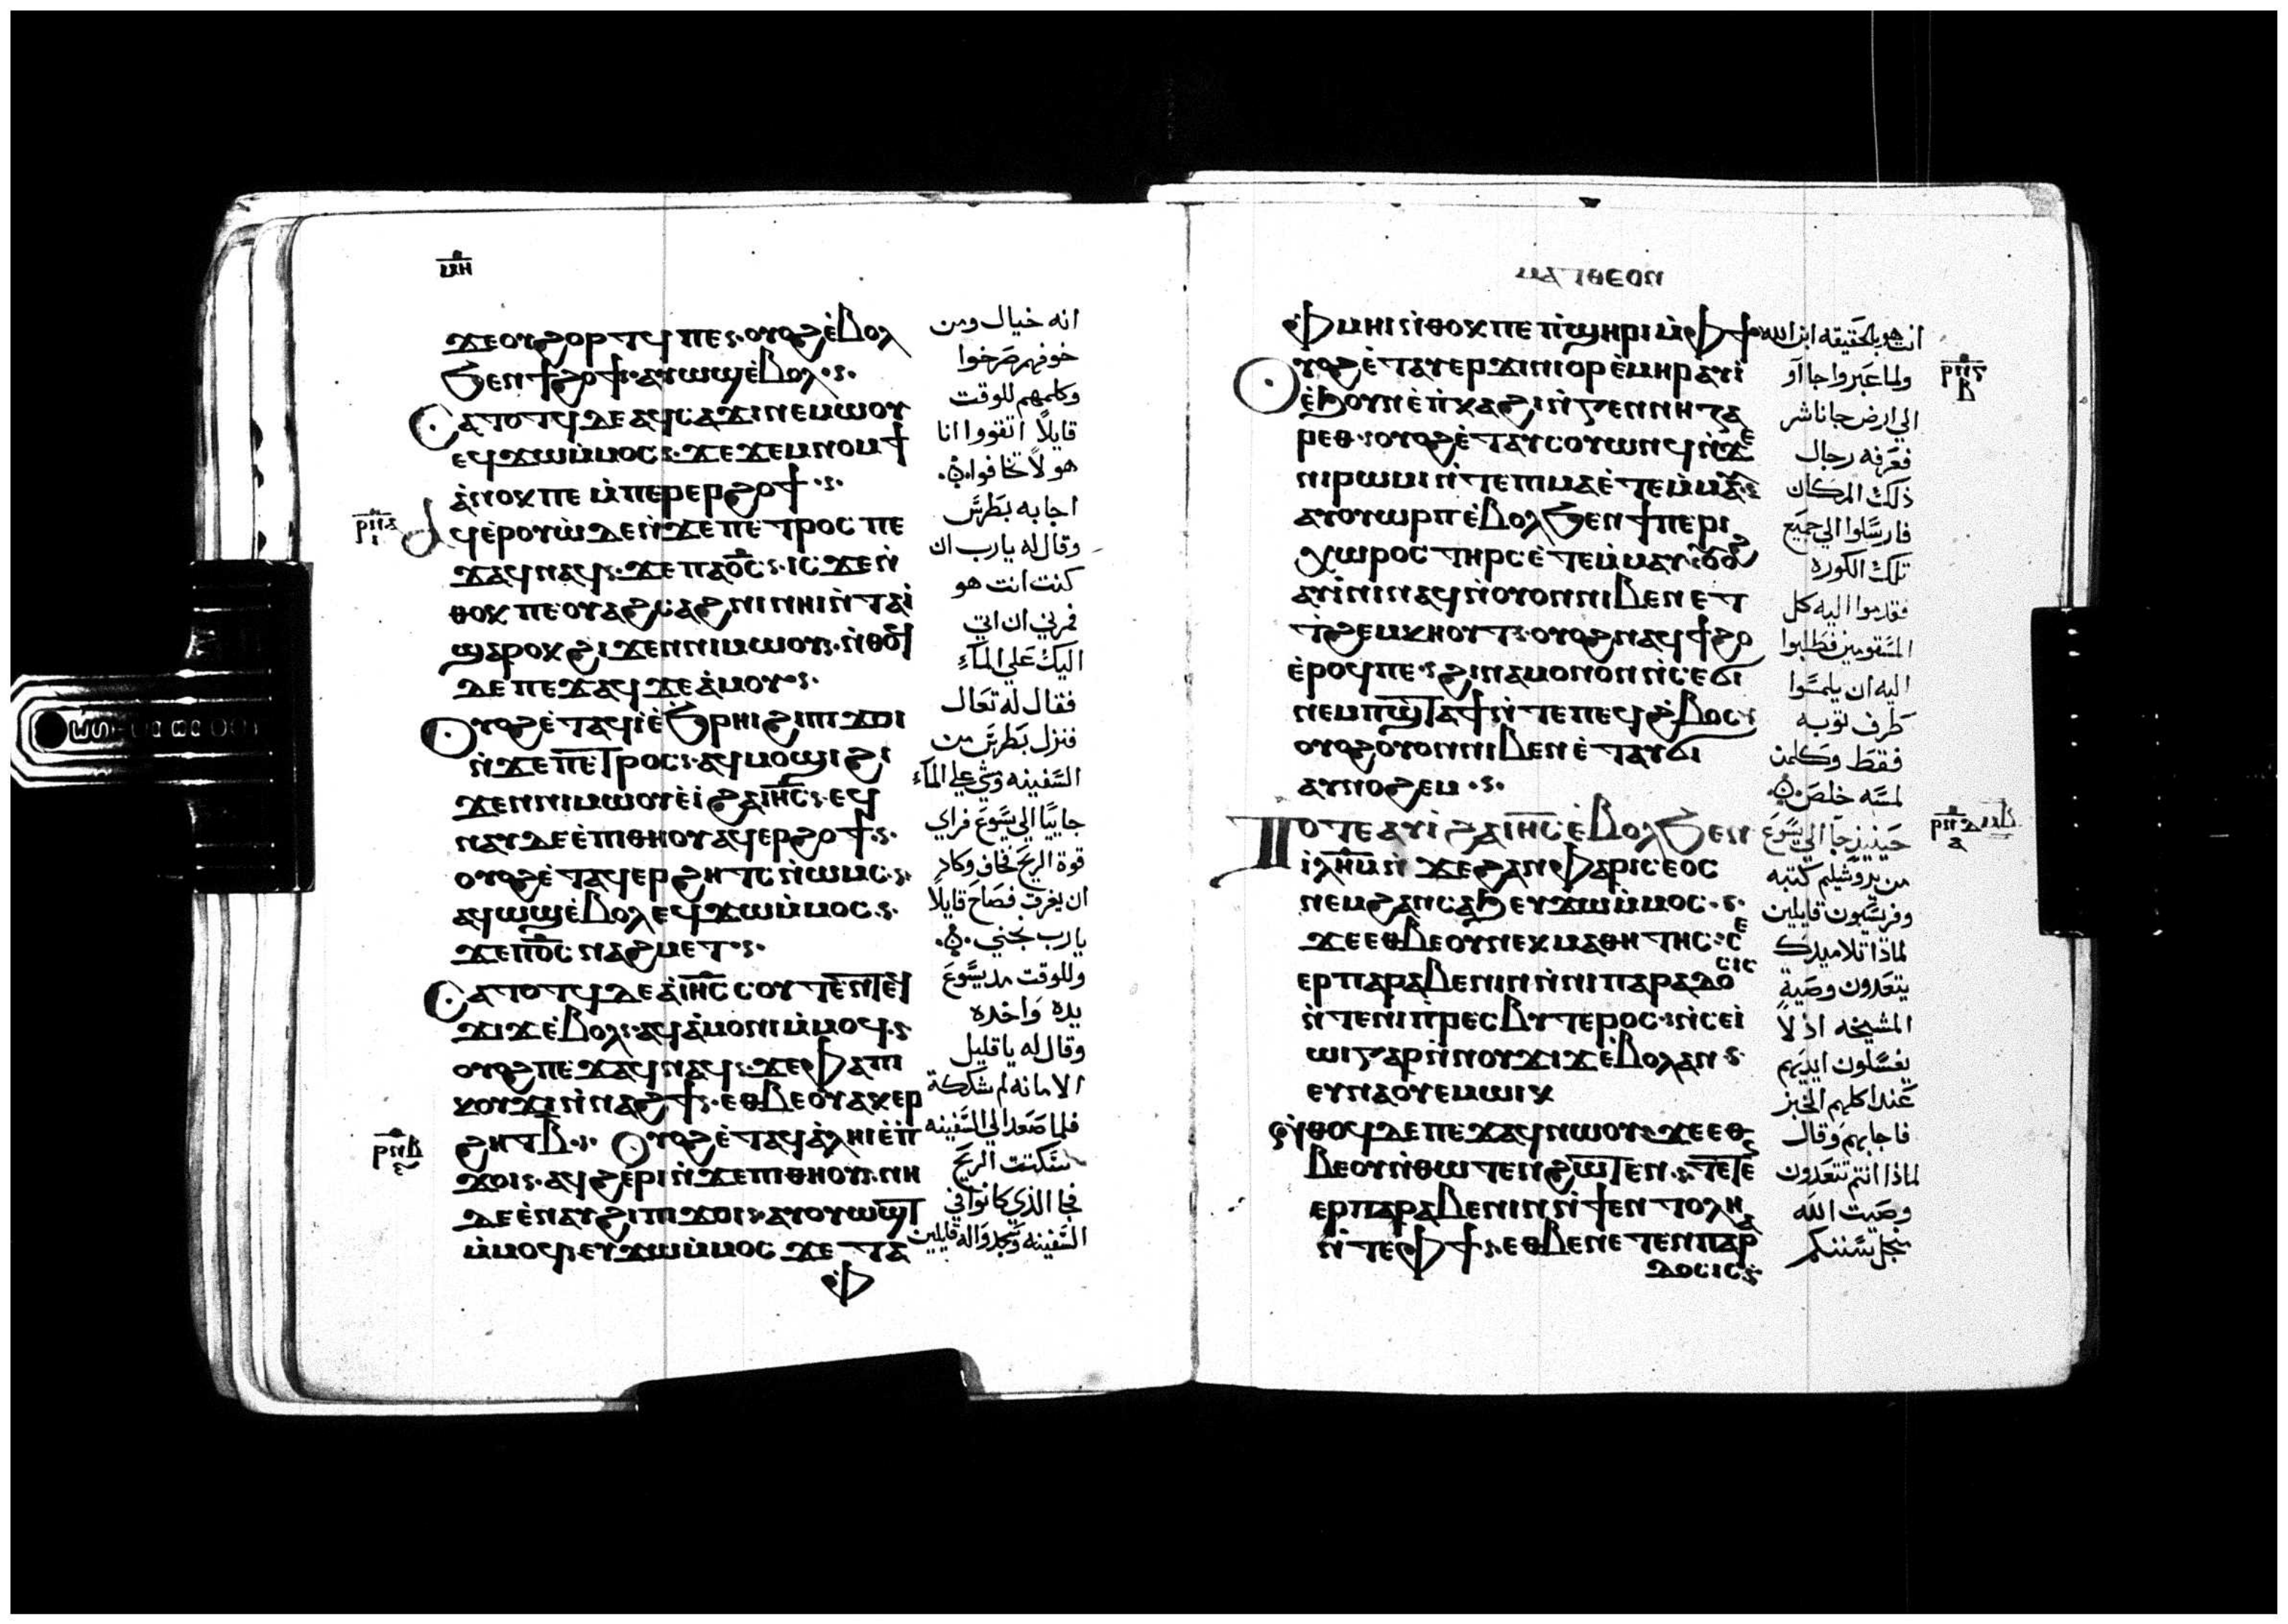 ⲙⲏ
ϫⲉⲟⲩϩⲟⲣⲧϥ ⲡⲉ· ⲟⲩⲟϩ ⲉ̀ⲃⲟⲗ
ϧⲉⲛ ϯϩⲟϯ· ⲁⲩⲱϣ ⲉ̀ⲃⲟⲗ·
ⲥⲁⲧⲟⲧϥ ⲇⲉ ⲁϥⲥⲁϫⲓ ⲛⲉⲙⲱⲟⲩ
ⲉϥϫⲱ ⲙ̀ⲙⲟⲥ· ϫⲉ ϫⲉⲙⲛⲟⲙϯ
ⲁ̀ⲛⲟⲕ ⲡⲉ ⲙ̀ⲡⲉⲣⲉⲣϩⲟϯ·
ⲁϥⲉⲣⲟⲩⲱ̀ ⲇⲉ ⲛ̀ϫⲉ ⲡⲉⲧⲣⲟⲥ ⲡⲉ
ϫⲁϥ ⲛⲁϥ· ϫⲉ ⲡⲁⲟ̅ⲥ̅· ⲓⲥϫⲉ ⲛ̀
ⲑⲟⲕ ⲡⲉ ⲟⲩⲁϩⲥⲁϩⲛⲓ ⲛⲏⲓ ⲛ̀ⲧⲁⲓ̀
ϣⲁⲣⲟⲕ ϩⲓϫⲉⲛ ⲛⲓⲙⲱⲟⲩ· ⲛ̀ⲑⲟϥ
ⲇⲉ ⲡⲉϫⲁϥ ϫⲉ ⲁ̀ⲙⲟⲩ·
ⲟⲩⲟϩ ⲉ̀ⲧⲁϥⲓ̀ ⲉ̀ϧⲣⲏⲓ ϩⲓ ⲡⲓϫⲟⲓ
ⲛ̀ϫⲉ ⲡⲉⲧⲣⲟⲥ· ⲁϥⲙⲟϣⲓ ϩⲓ
ϫⲉⲛ ⲛⲓⲙⲱⲟⲩ ⲉ̀ⲓ̀ ϩⲁ ⲓⲏ̅ⲥ̅· ⲉϥ
ⲛⲁⲩ ⲇⲉ ⲉ̀ⲡⲓⲑⲏⲟⲩ ⲁϥⲉⲣϩⲟϯ·
ⲟⲩⲟϩ ⲉ̀ⲧⲁϥⲉⲣϩⲏⲧⲥ ⲛ̀ⲱⲙⲥ·
ⲁϥⲱϣ ⲉ̀ⲃⲟⲗ ⲉϥϫⲱ ⲙ̀ⲙⲟⲥ·
ϫⲉ ⲡⲟ̅ⲥ̅ ⲛⲁϩⲙⲉⲧ·
ⲥⲁⲧⲟⲧϥ ⲇⲉ ⲁ̀ ⲓⲏ̅ⲥ̅ ⲥⲟⲩⲧⲉⲛ ⲧⲉϥ
ϫⲓϫ ⲉ̀ⲃⲟⲗ· ⲁϥⲁ̀ⲙⲟⲛⲓ ⲙ̀ⲙⲟϥ·
ⲟⲩⲟϩ ⲡⲉϫⲁϥ ⲛⲁϥ· ϫⲉ ⲫⲁ ⲡⲓ
ⲕⲟⲩϫⲓ ⲛ̀ⲛⲁϩϯ· ⲉⲑⲃⲉⲟⲩ ⲁⲕⲉⲣ
ϩⲏⲧ ⲃ̅· ⲟⲩⲟϩ ⲉ̀ⲧⲁϥⲁ̀ⲗⲏⲓ ⲉ̀ⲡ
ϫⲟⲓ· ⲁϥϩⲉⲣⲓ ⲛ̀ϫⲉ ⲡⲓⲑⲏⲟⲩ· ⲛⲏ
ⲇⲉ ⲉ̀ⲛⲁⲩϩⲓ ⲡⲓϫⲟⲓ· ⲁⲩⲟⲩⲱϣⲧ
ⲙ̀ⲙⲟϥ· ⲉⲩϫⲱ ⲙ̀ⲙⲟⲥ ϫⲉ ⲧⲁ
ⲫ
انه خيال ومن
خوفهم صرخوا
وكلمهم للوقت
قايلاً اتقووا انا
هو لا تخافوا
اجابه بطرس
وقال له يارب ان
كنت انت هو
فمرني ان اتي
اليك علي المآء
فقال له تعال
فنزل بطرس من
السفينه ومشي علي المآء
جاييًا الي يسوع فراي
قوة الريح فخاف وكاد
ان يغرق فصاح قايلاً
يارب نجني
وللوقت مد يسوع
يده واخده
وقال له ياقليل
الامانه لم شككت
فلما صعد الي السفينه
سكتت الريح
فجا الذي كانوا في
السفينه وسجدوا له قايلين
ⲙⲁⲧⲑⲉⲟⲛ
ⲫⲙⲏⲓ ⲛ̀ⲑⲟⲕ ⲡⲉ ⲡ̀ϣⲏⲣⲓ ⲙ̀ⲫϯ·
ⲟⲩⲟϩ ⲉ̀ⲧⲁⲩⲉⲣϫⲓⲛⲓⲟⲣ ⲉ̀ⲙⲏⲣ ⲁⲩⲓ̀
ⲉ̀ϧⲟⲩⲛ ⲉ̀ⲡ̀ⲕⲁϩⲓ ⲛ̀ⲅⲉⲛⲛⲏⲍⲁ
ⲣⲉⲑ· ⲟⲩⲟϩ ⲉ̀ⲧⲁⲩⲥⲟⲩⲱⲛϥ ⲛ̀ϫⲉ
ⲛⲓⲣⲱⲙⲓ ⲛ̀ⲧⲉ ⲡⲓⲙⲁ ⲉ̀ⲧⲉⲙ̀ⲙⲁⲩ·
ⲁⲩⲟⲩⲱⲣⲡ ⲉ̀ⲃⲟⲗ ϧⲉⲛ ϯⲡⲉⲣⲓ
ⲭⲱⲣⲟⲥ ⲧⲏⲣⲥ ⲉ̀ⲧⲉⲙ̀ⲙⲁⲩ· ⲟⲩⲟϩ
ⲁⲩⲓ̀ⲛⲓ ⲛⲁϥ ⲛ̀ⲟⲩⲟⲛ ⲛⲓⲃⲉⲛ ⲉⲧ
ⲧ̀ϩⲉⲙⲕⲏⲟⲩⲧ· ⲟⲩⲟϩ ⲛⲁⲩϯϩⲟ
ⲉ̀ⲣⲟϥ ⲡⲉ· ϩⲓⲛⲁ ⲙⲟⲛⲟⲛ ⲛ̀ⲥⲉϭⲓ
ⲛⲉⲙ ⲡϣⲧⲁϯ ⲛ̀ⲧⲉ ⲡⲉϥϩ̀ⲃⲟⲥ·
ⲟⲩⲟϩ ⲟⲩⲟⲛ ⲛⲓⲃⲉⲛ ⲉ̀ⲧⲁⲩϭⲓ
ⲁⲩⲛⲟϩⲉⲙ·
ⲧⲟⲧⲉ ⲁⲩⲓ̀ ϩⲁ ⲓⲏ̅ⲥ̅ ⲉ̀ⲃⲟⲗ ϧⲉⲛ
ⲓⲗⲏⲙ ⲛ̀ϫⲉ ϩⲁⲛⲫⲁⲣⲓⲥⲉⲟⲥ
ⲛⲉⲙ ϩⲁⲛⲥⲁϧ ⲉⲩϫⲱ ⲙ̀ⲙⲟⲥ·
ϫⲉ ⲉⲑⲃⲉⲟⲩ ⲛⲉⲕⲙⲁⲑⲏⲧⲏⲥ ⲥⲉ
ⲉⲣⲡⲁⲣⲁⲃⲉⲛⲓⲛ ⲛ̀ⲛⲓⲡⲁⲣⲁⲇⲟⲥⲓⲥ
ⲛ̀ⲧⲉ ⲛⲓⲡ̀ⲣⲉⲥⲃⲩⲧⲉⲣⲟⲥ· ⲛ̀ⲥⲉⲓ̀
ⲱⲓ ⲅⲁⲣ ⲛ̀ⲛⲟⲩϫⲓϫ ⲉ̀ⲃⲟⲗ ⲁⲛ·
ⲉⲩⲛⲁⲟⲩⲉⲙ ⲱⲓⲕ
ⲛ̀ⲑⲟϥ ⲇⲉ ⲡⲉϫⲁϥ ⲛⲱⲟⲩ· ϫⲉ ⲉⲑ
ⲃⲉⲟⲩ ⲛ̀ⲑⲱⲧⲉⲛ ϩⲱⲧⲉⲛ· ⲧⲉⲧⲉⲛ
ⲉⲣⲡⲁⲣⲁⲃⲉⲛⲓⲛ ⲛ̀ϯⲉⲛⲧⲟⲗⲏ
ⲛ̀ⲧⲉ ⲫϯ· ⲉⲑⲃⲉ ⲛⲉⲧⲉⲛⲡⲁⲣⲁ
ⲇⲟⲥⲓⲥ·
انت هو بالحقيقه ابن الله
ولما عبروا جاآو
الي ارض جاناشر
فعرفه رجال
ذلك المكان
فارسلوا الي جميع
تلك الكوره
فقدموا اليه كل
المسقومين فطلبوا
اليه ان يلمسوا
طرف توبه
فقط وكلمن
لمسه خلص
حينيذ جآ الي يسوع
من يروشليم كتبه
وفريسيون قايلين
لماذا تلاميدك
يتعدون وصية
المشيخه اذ لا
يغسلون ايديهم
عند اكلهم الخبز
فاجابهم وقال
لماذا انتم تتعدون
وصيت الله